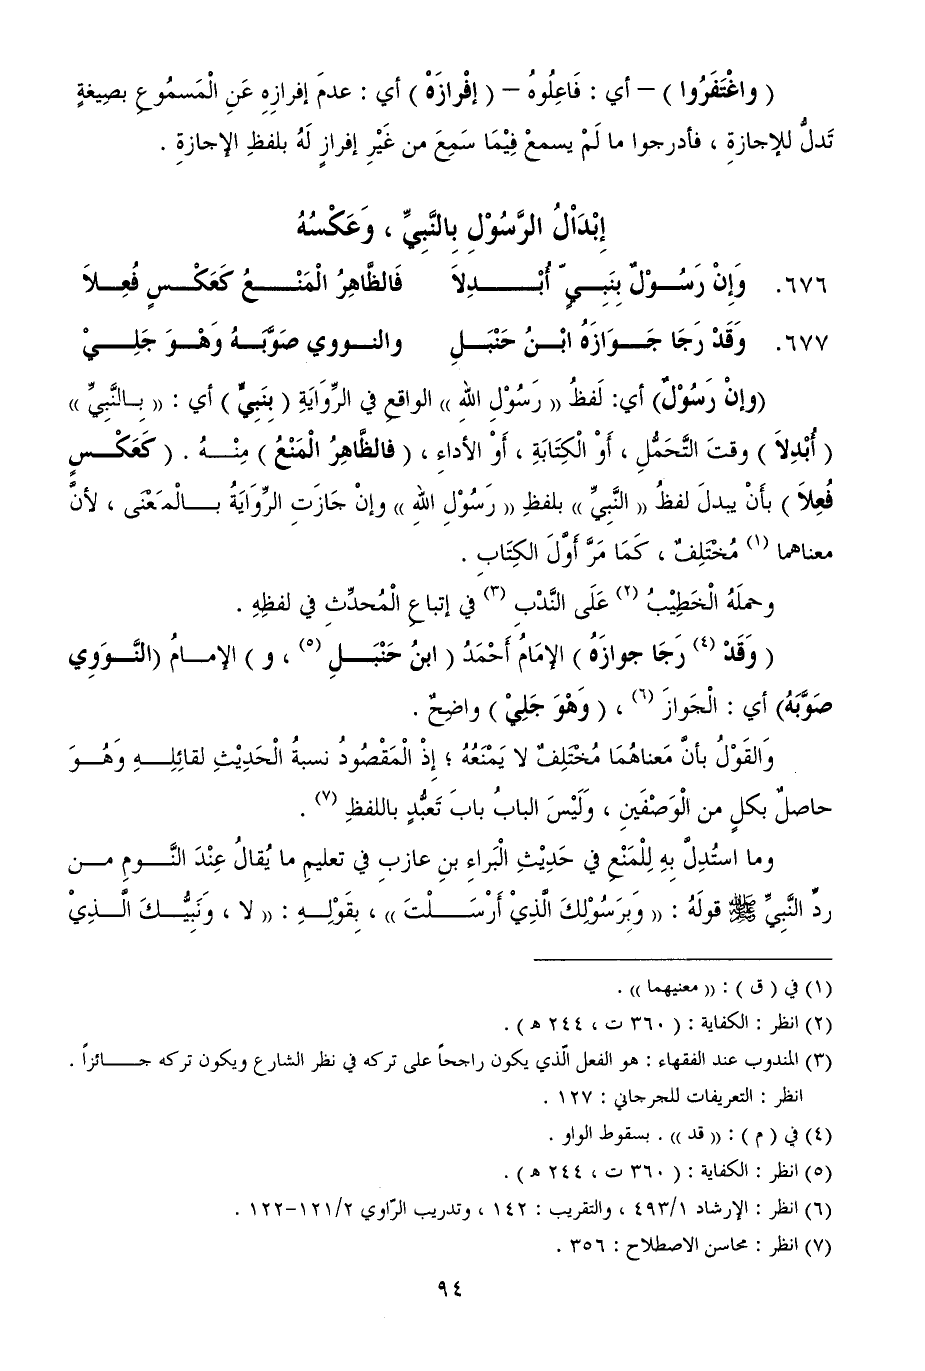 ( واغْتَفَرُوا ) – أي : فَاعِلُوهُ – ( إفْرازَهْ ) أي : عدمَ إفرازِهِ عَنِ الْمَسمُوعِ بصيغةٍ
تَدلُّ للإجازةِ ، فأدرجوا ما لَمْ يسمعْ فِيْمَا سَمِعَ من غَيْرِ إفرازٍ لَهُ بلفظِ الإجازةِ .
إبْدَاْلُ الرَّسُوْلِ بالنَّبِيِّ ، وَعَكْسُهُ
٦٧٦. وَإنْ رَسُـوْلٌ بِنَبِـيٍّ أُبْـــدِلاَ فَالظَّاهِرُ الْمَنْـــعُ كَعَكْـسٍ فُعِـلاَ
٦٧٧. وَقَدْ رَجَا جَـوَازَهُ ابْـنُ حَنْبَـلِ والنـووي صَوَّبَـهُ وَهْـوَ جَلِـيْ
(وإنْ رَسُوْلٌ) أي: لَفظُ « رَسُوْلِ اللهِ » الواقع في الرِّوَايَةِ ( بِنَبِيٍّ ) أي : « بـالنَّبِيِّ »
( أُبْدِلاَ ) وقتَ التَّحَمُّلِ ، أَوْ الْكِتَابَةِ ، أَوْ الأداءِ ، ( فالظَّاهِرُ الْمَنْعُ ) مِنْـهُ . ( كَعَكْـسٍ
فُعِلاَ ) بأنْ يبدلَ لفظُ « النَّبِيِّ » بلفظِ « رَسُوْلِ اللهِ » وإنْ جَازَتِ الرِّوَايَةُ بـالْمَعْنَى ، لأنَّ
معناهما (١) مُخْتَلِفٌ ، كَمَا مَرَّ أوَّلَ الكِتَابِ .
وحملَهُ الْخَطِيْبُ (٢) عَلَى النَّدْبِ (٣) في إتباعِ الْمُحدِّثِ في لفظِهِ .
( وَقَدْ (٤) رَجَا جوازَهُ ) الإمَامُ أَحْمَدُ ( ابنُ حَنْبَـلِ (٥) ، و ) الإمـامُ (النَّـوَوِي
صَوَّبَهُ) أي : الْجَوازَ (٦) ، ( وَهْوَ جَلِيْ ) واضِحٌ .
وَالقَوْلُ بأنَّ مَعناهُمَا مُخْتَلِفٌ لا يَمْنَعُهُ ؛ إذْ الْمَقْصُودُ نسبةُ الْحَدِيْثِ لقائِلِـهِ وَهُـوَ
حاصلٌ بكلٍ من الْوَصْفَينِ ، وَلَيْسَ البابُ بابَ تَعبُّدٍ باللفظِ (٧) .
وما استُدلَّ بِهِ لِلْمَنْعِ في حَدِيْثِ الْبَراءِ بنِ عازبٍ في تعليمِ ما يُقالُ عِنْدَ النَّـومِ مـن
ردِّ النَّبِيِّ ﷺ قولَهُ : « وَبِرَسُوْلِكَ الَّذِيْ أَرْسَـلْتَ » ، بِقَوْلِـهِ : « لا ، وَنَبِيِّـكَ الَّـذِيْ
(١) في ( ق ) : « معنيهما » .
(٢) انظر : الكفاية : ( ٣٦٠ ت ، ٢٤٤ هـ ) .
(٣) المندوب عند الفقهاء : هو الفعل الّذي يكون راجحاً على تركه في نظر الشارع ويكون تركه جـائزاً .
انظر : التعريفات للجرجاني : ١٢٧ .
(٤) في ( م ) : « قد » . بسقوط الواو .
(٥) انظر : الكفاية : ( ٣٦٠ ت ، ٢٤٤ هـ ) .
(٦) انظر : الإرشاد ٤٩٣/١ ، والتقريب : ١٤٢ ، وتدريب الرّاوي ١٢١/٢-١٢٢ .
(٧) انظر : محاسن الاصطلاح : ٣٥٦ .
٩٤